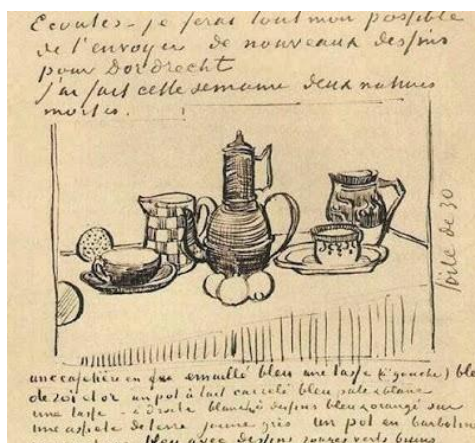 Ecoutes – je ferai tout mon possible
de t'envoyer de nouveaux dessins
pour Dordrecht
J'ai fait cette semaine deux natures
mortes.
toile de 30
une cafetière en fer emaillé bleu une tasse (à gauche) bleu
de roi et or un pot à lait carrelé bleu pale & blanc
une tasse – à droite blanche à dessins bleus & orangé sur
une assiete de terre jaune gris un pot en barbotine
bleu avec dessins rouges verts bruns